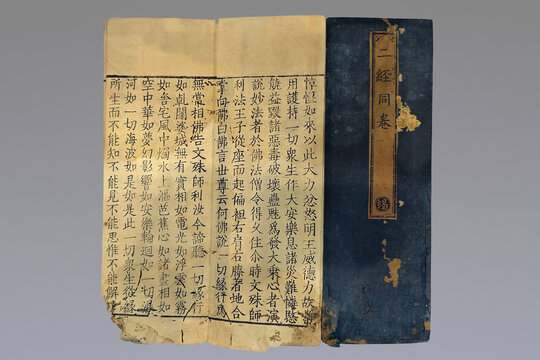 二經同卷
如來以此大力忿怒明王威德力故
用護持一切衆生作大安樂息諸災難愍
饒益毀諸惡毒破壞蠱魅爲發大乘心者演
說妙法者於佛法僧令得久住尒時文殊師
利法王子從座而起偏袒右肩右膝著地合
掌向佛白佛言世尊云何佛說一切緣行爲
無常相佛告文殊師利汝今諦聽一切緣行
如乾闥婆城無有實相如電光如浮雲如霧
如舍宅風中燭水上漚芭蕉心如諸畫相如
空中華如夢幻影響如安樂輪迴如一切
河如一切海波如是如是此一切衆生從緣
所生而不能知不能見不能思惟不能解